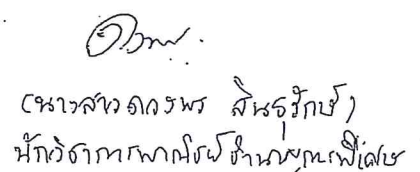 (นางสาวดวงพร สินธุรักษ์)
นักวิชาการพาณิชย์ชำนาญการพิเศษ